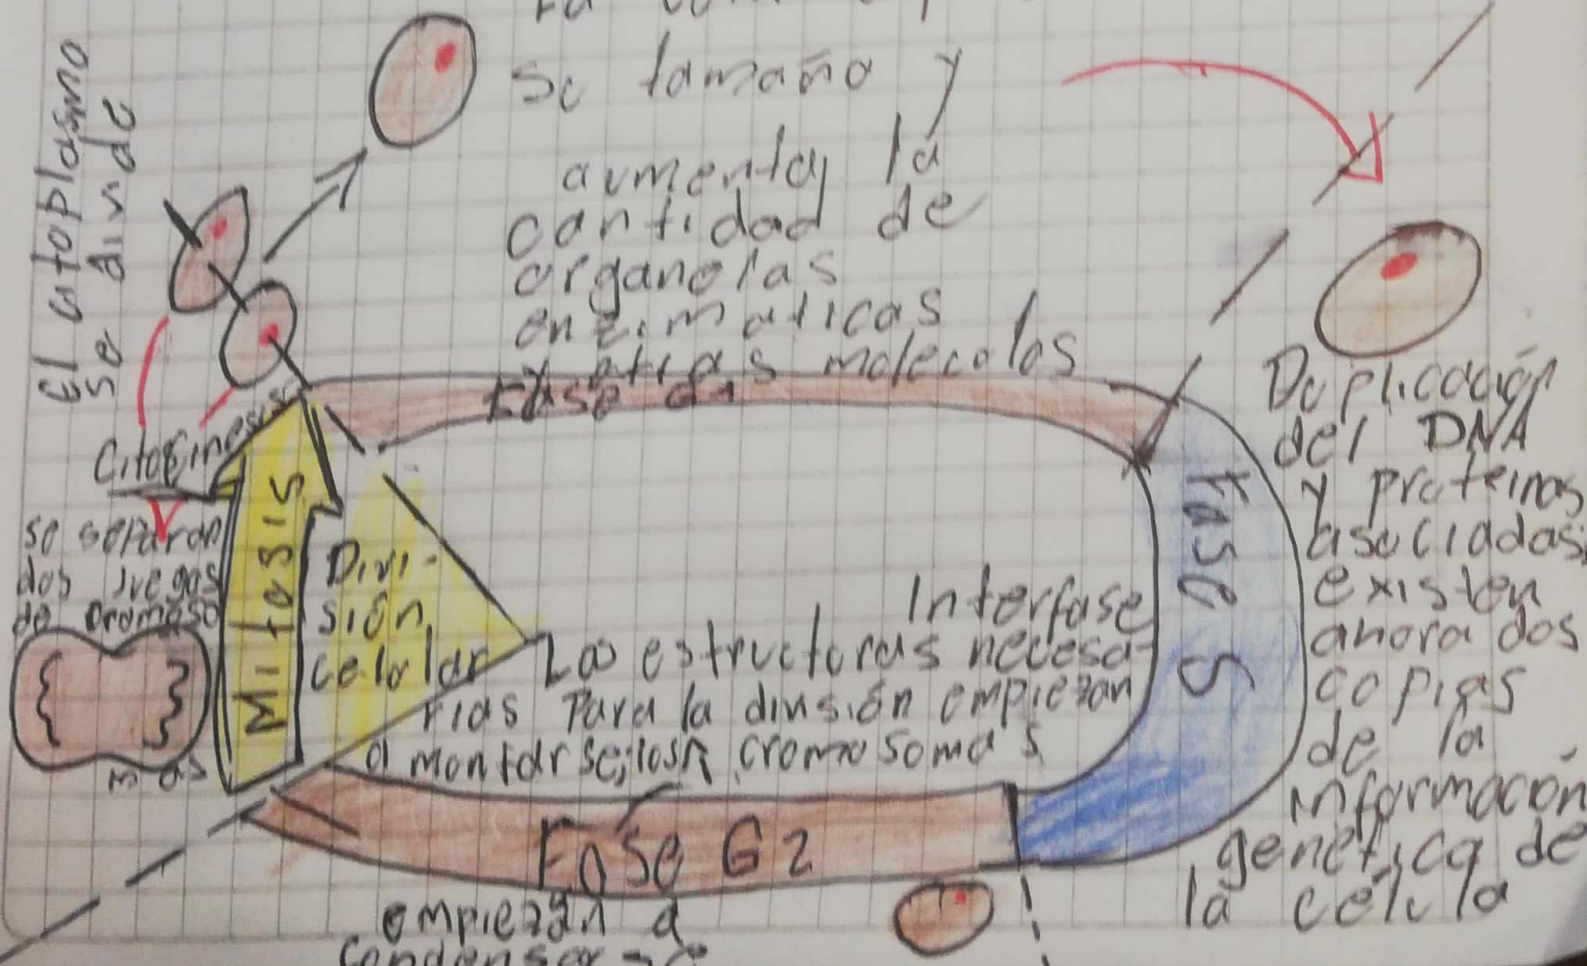 El citoplasmo
se divide
su tamaño y
aumentan la
cantidad de
organelas
enzimaticas
y otras moleculas
Fase G1
Citosinesis
se separan
dos juegos
de cromoso
mas
Mitosis
Divi-
sión
celular
Interfase
Las estructuras necesa-
rias para la división empiezan
a montarse; los cromosomas
empiezan a
condensarse
Fase G2
Fase S
Duplicación
del DNA
y proteinas
asociadas
existen
ahora dos
copias
de la
información
genética de
la célula